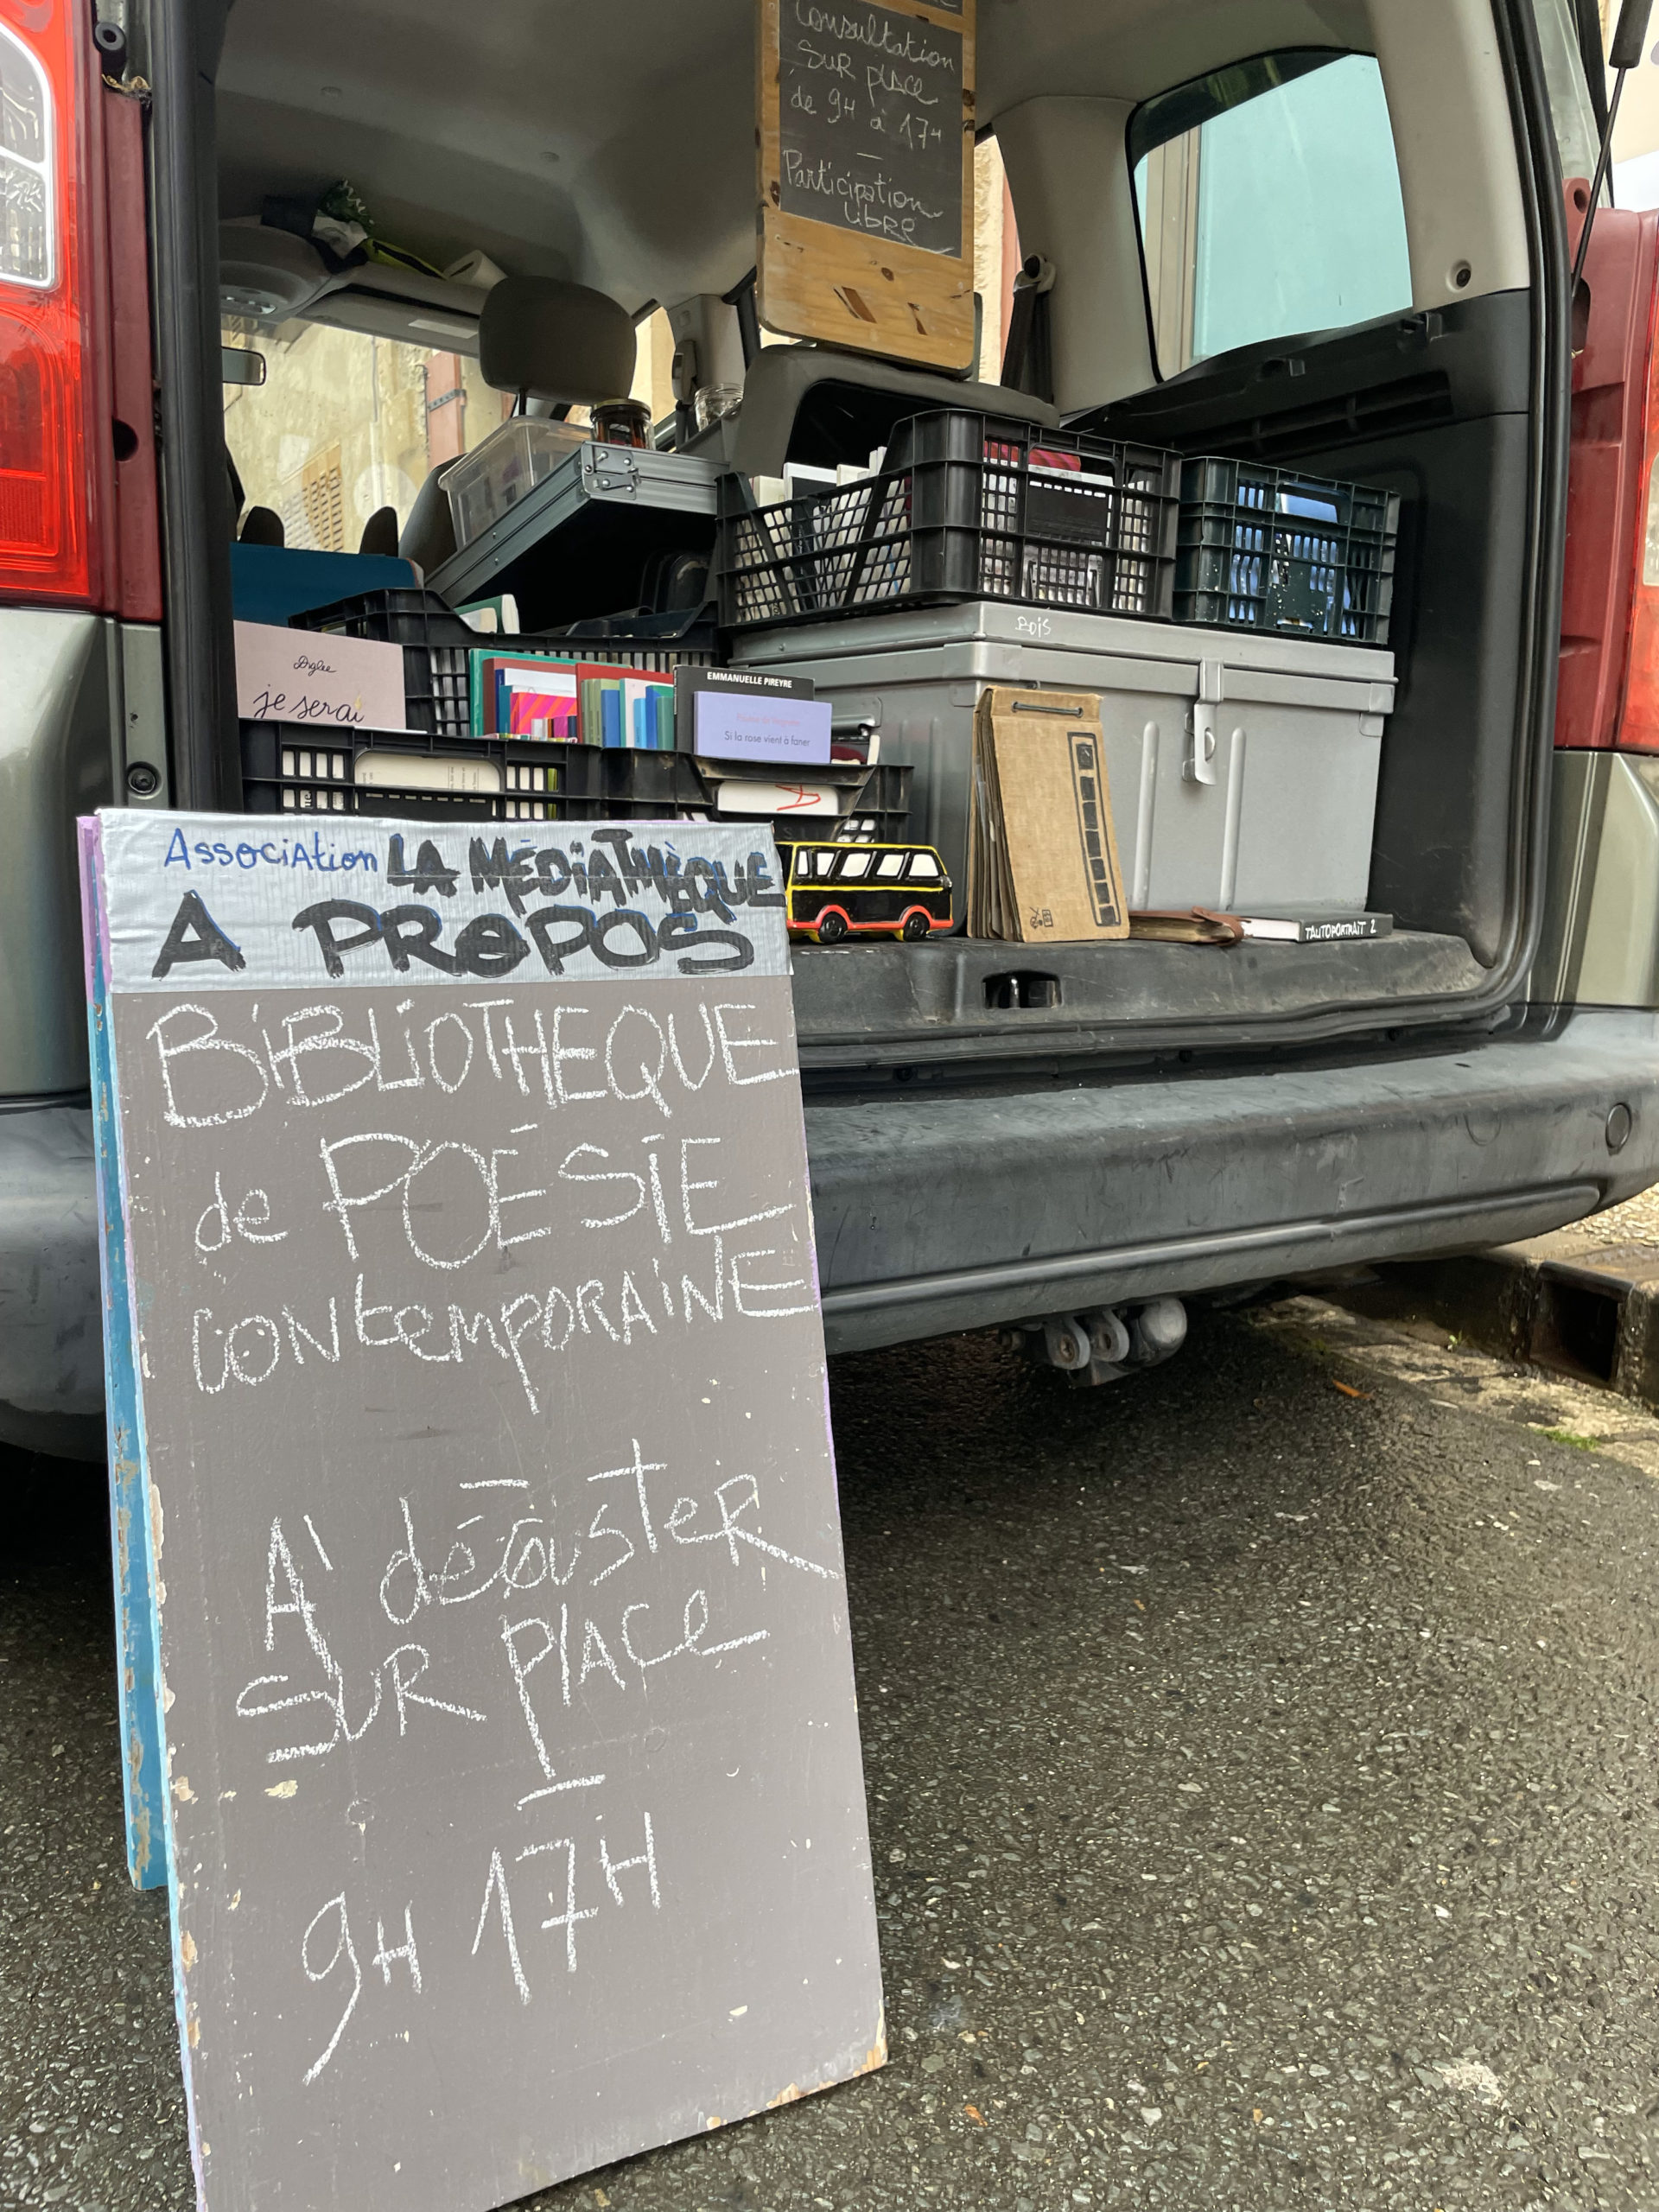 Consultation
SUR place
de 9H à 17H
Participation
LIBRE
BOIS
Diglee
je serai
EMMANUELLE PIREYRE
Si la rose vient à faner
TAUTOPORTRAIT 2
Association LA MÉDIATHÈQUE
A PROPOS
BiBLiOTHEQUE
de POÉSIE
CONtemPORAiNE
A' déGuster
SUR PlACe
9H 17H